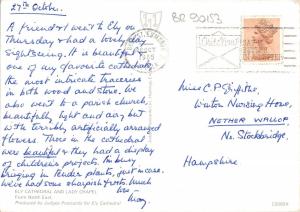 27th October.
BR 90153
A friend & I went to Ely on
Thursday & had a lovely day
sightseeing. It is beautiful &
one of my favourite cathedrals
the most intricate traceries
in both wood and stone. We
also went to a parish church,
beautifully light and airy but
with terribly artificially arranged
flowers. Those in the cathedral
were beautiful & they had a display
of children's projects. I'm busy
bringing in tender plants, just in case.
We've had some sharpish frosts. Much
love
Mary.
Miss C P Griffiths,
Winton Nursing Home,
NETHER WALLOP,
Nr. Stockbridge,
Hampshire
ELY CATHEDRAL AND LADY CHAPEL
From North East
Produced by Judges Postcards for Ely Cathedral